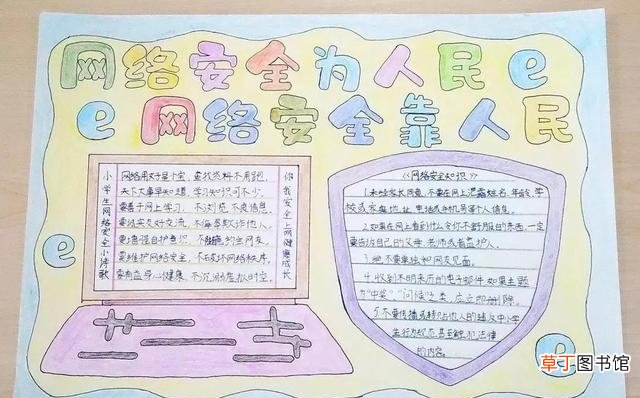 网络安全为人民
e
e
网络安全靠人民
小学生网络安全小诗歌
网络用好是个宝，查找资料不用跑。
天下大事早知道，学习知识可不少。
要善于网上学习，不浏览不良信息。
要诚实友好交流，不侮辱欺诈他人。
要增强自护意识，不随意约会网友。
要维护网络安全，不破坏网络秩序。
要有益身心健康，不沉溺虚拟时空。
你我安全上网健康成长
《网络安全知识》
1.未经家长同意，不要在网上泄露姓名、年龄、学
校或家庭地址、电话或手机号等个人信息。
2.如果在网上看到什么令你不舒服的东西，一定
要告诉自己的父母、老师或者监护人。
3.绝不要单独和网友见面。
4.收到不明来历的电子邮件，如果主题
为“中奖”、“问候”之类，应立即删除。
5.不要传播或转贴他人的违反中小学
生行为规范甚至触犯法律
的内容。
e
e
草丁图书馆